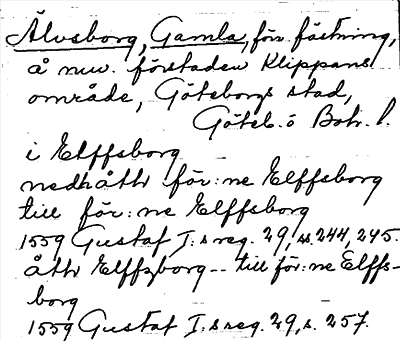 Älvsborg, Gamla, förr fästning,
å nuv. förstaden Klippans
område, Göteborgs stad,
Göteb. o Boh. l.
i Elffsborg
nedhåttr för:ne Elffsborg
till för:ne Elffsborg
1559 Gustaf I:s reg. 29, ss. 244, 245.
åttr Elffzborg -- till för:ne Elffs-
borg
1559 Gustaf I:s reg. 29, s. 257.